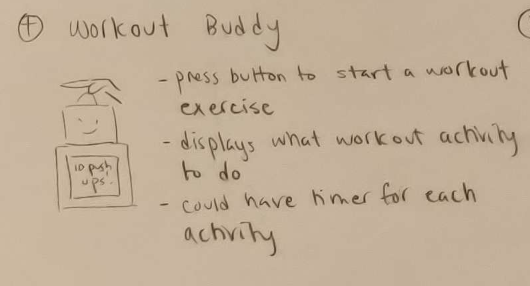 ④ Workout Buddy
- press button to start a workout
exercise
- displays what workout activity
to do
- could have timer for each
activity
10 push
ups.